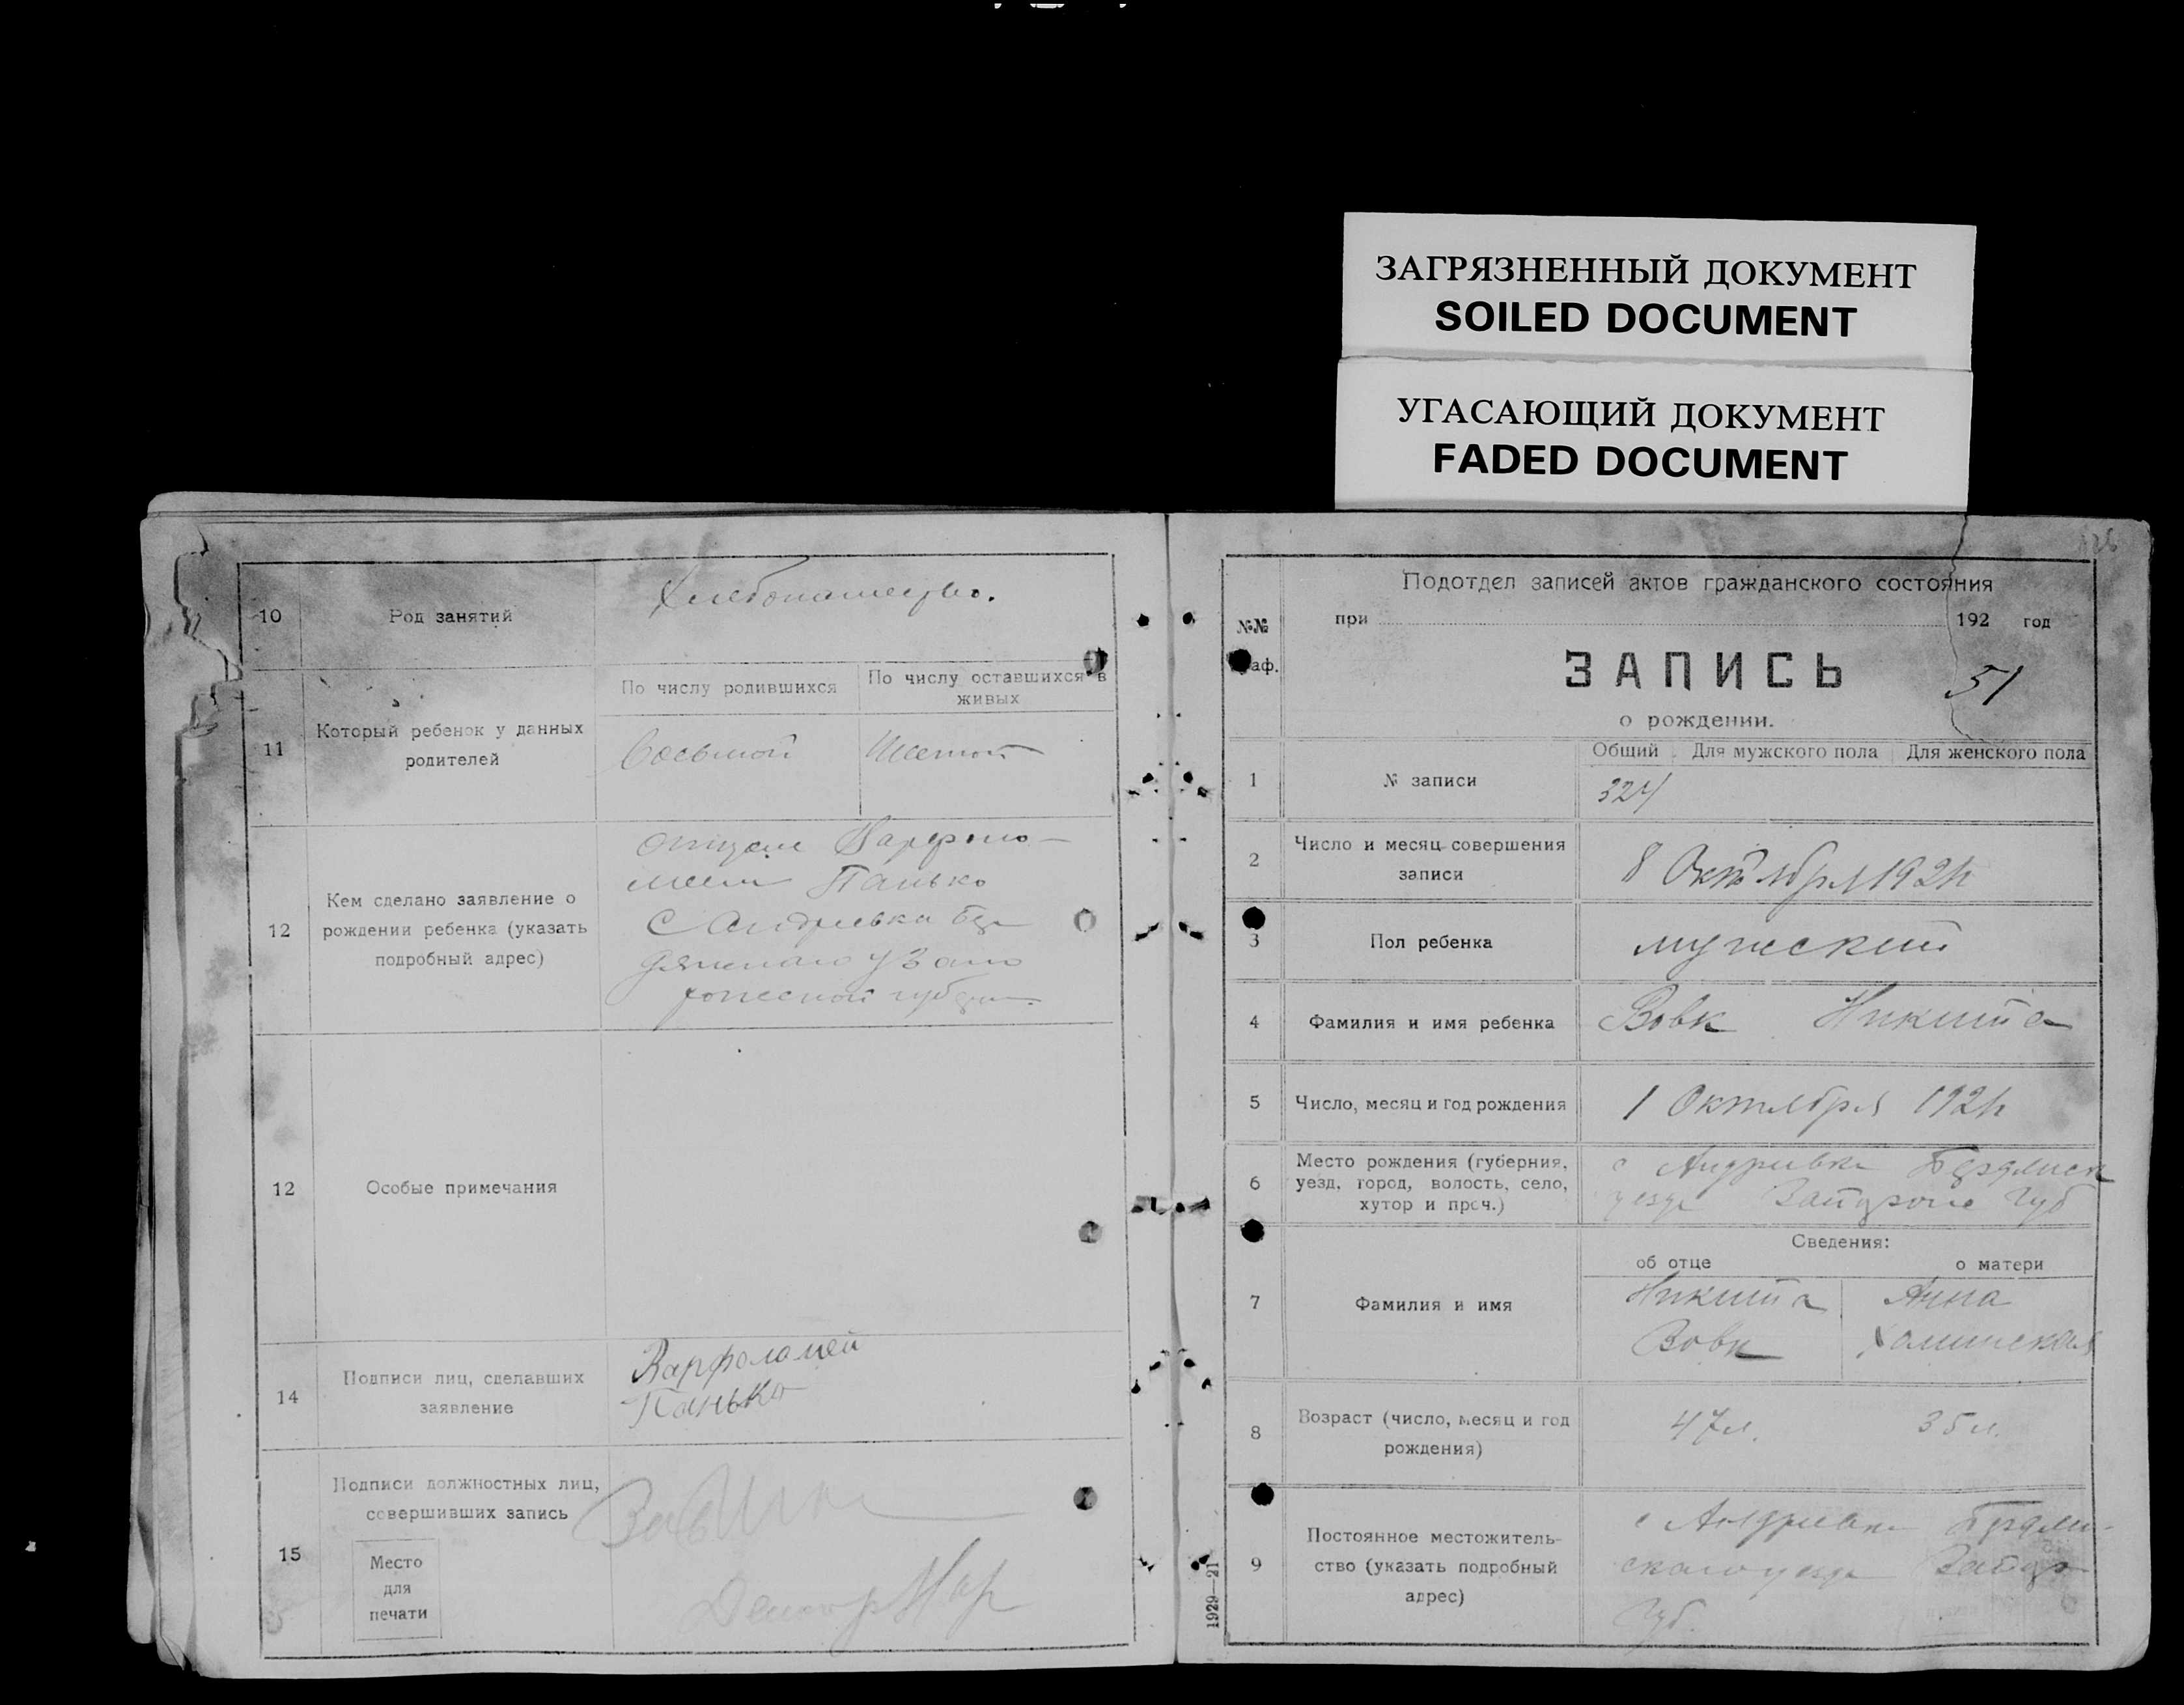 ЗАГРЯЗНЕННЫЙ ДОКУМЕНТ
SOILED DOCUMENT
УГАСАЮЩИЙ ДОКУМЕНТ
FADED DOCUMENT
10 Род занятий Хлебопашество.
11 Который ребенок у данных родителей
По числу родившихся
По числу оставшихся в живых
Восьмой
12 Кем сделано заявление о
рождении ребенка (указать
подробный адрес)
Варфоло-
меем Панько
С Андреевка Бер
дянского у Запо
рожской губернии
12 Особые примечания
14 Подписи лиц, сделавших
заявление
Варфоломей
Панько
15 Подписи должностных лиц,
совершивших запись
Место
для
печати
№№
аф.
Подотдел записей актов гражданского состояния
при 192 год
ЗАПИСЬ
51
о рождении.
1 № записи
Общий Для мужского пола Для женского пола
324
2 Число и месяц совершения
записи
8 Октября
3 Пол ребенка мужский
4 Фамилия и имя ребенка Вовк Никита
5 Число, месяц и год рождения 1 Октября
6 Место рождения (губерния,
уезд, город, волость, село,
хутор и проч.)
с Андриевка Бердянск
уезда Губ
7 Фамилия и имя
Сведения:
об отце о матери
Никита Анна
Вовк
8 Возраст (число, месяц и год
рождения)
47л. 35л.
9 Постоянное местожитель-
ство (указать подробный
адрес)
с Андриевка Бердян-
ского уезда
Губ.
1929—21